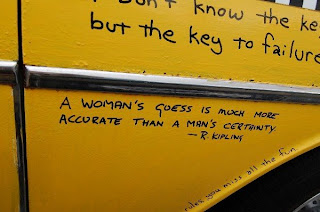 don't know the key
but the key to failure
A WOMAN'S GUESS IS MUCH MORE
ACCURATE THAN A MAN'S CERTAINTY.
—R. KIPLING
rules you miss all the fun